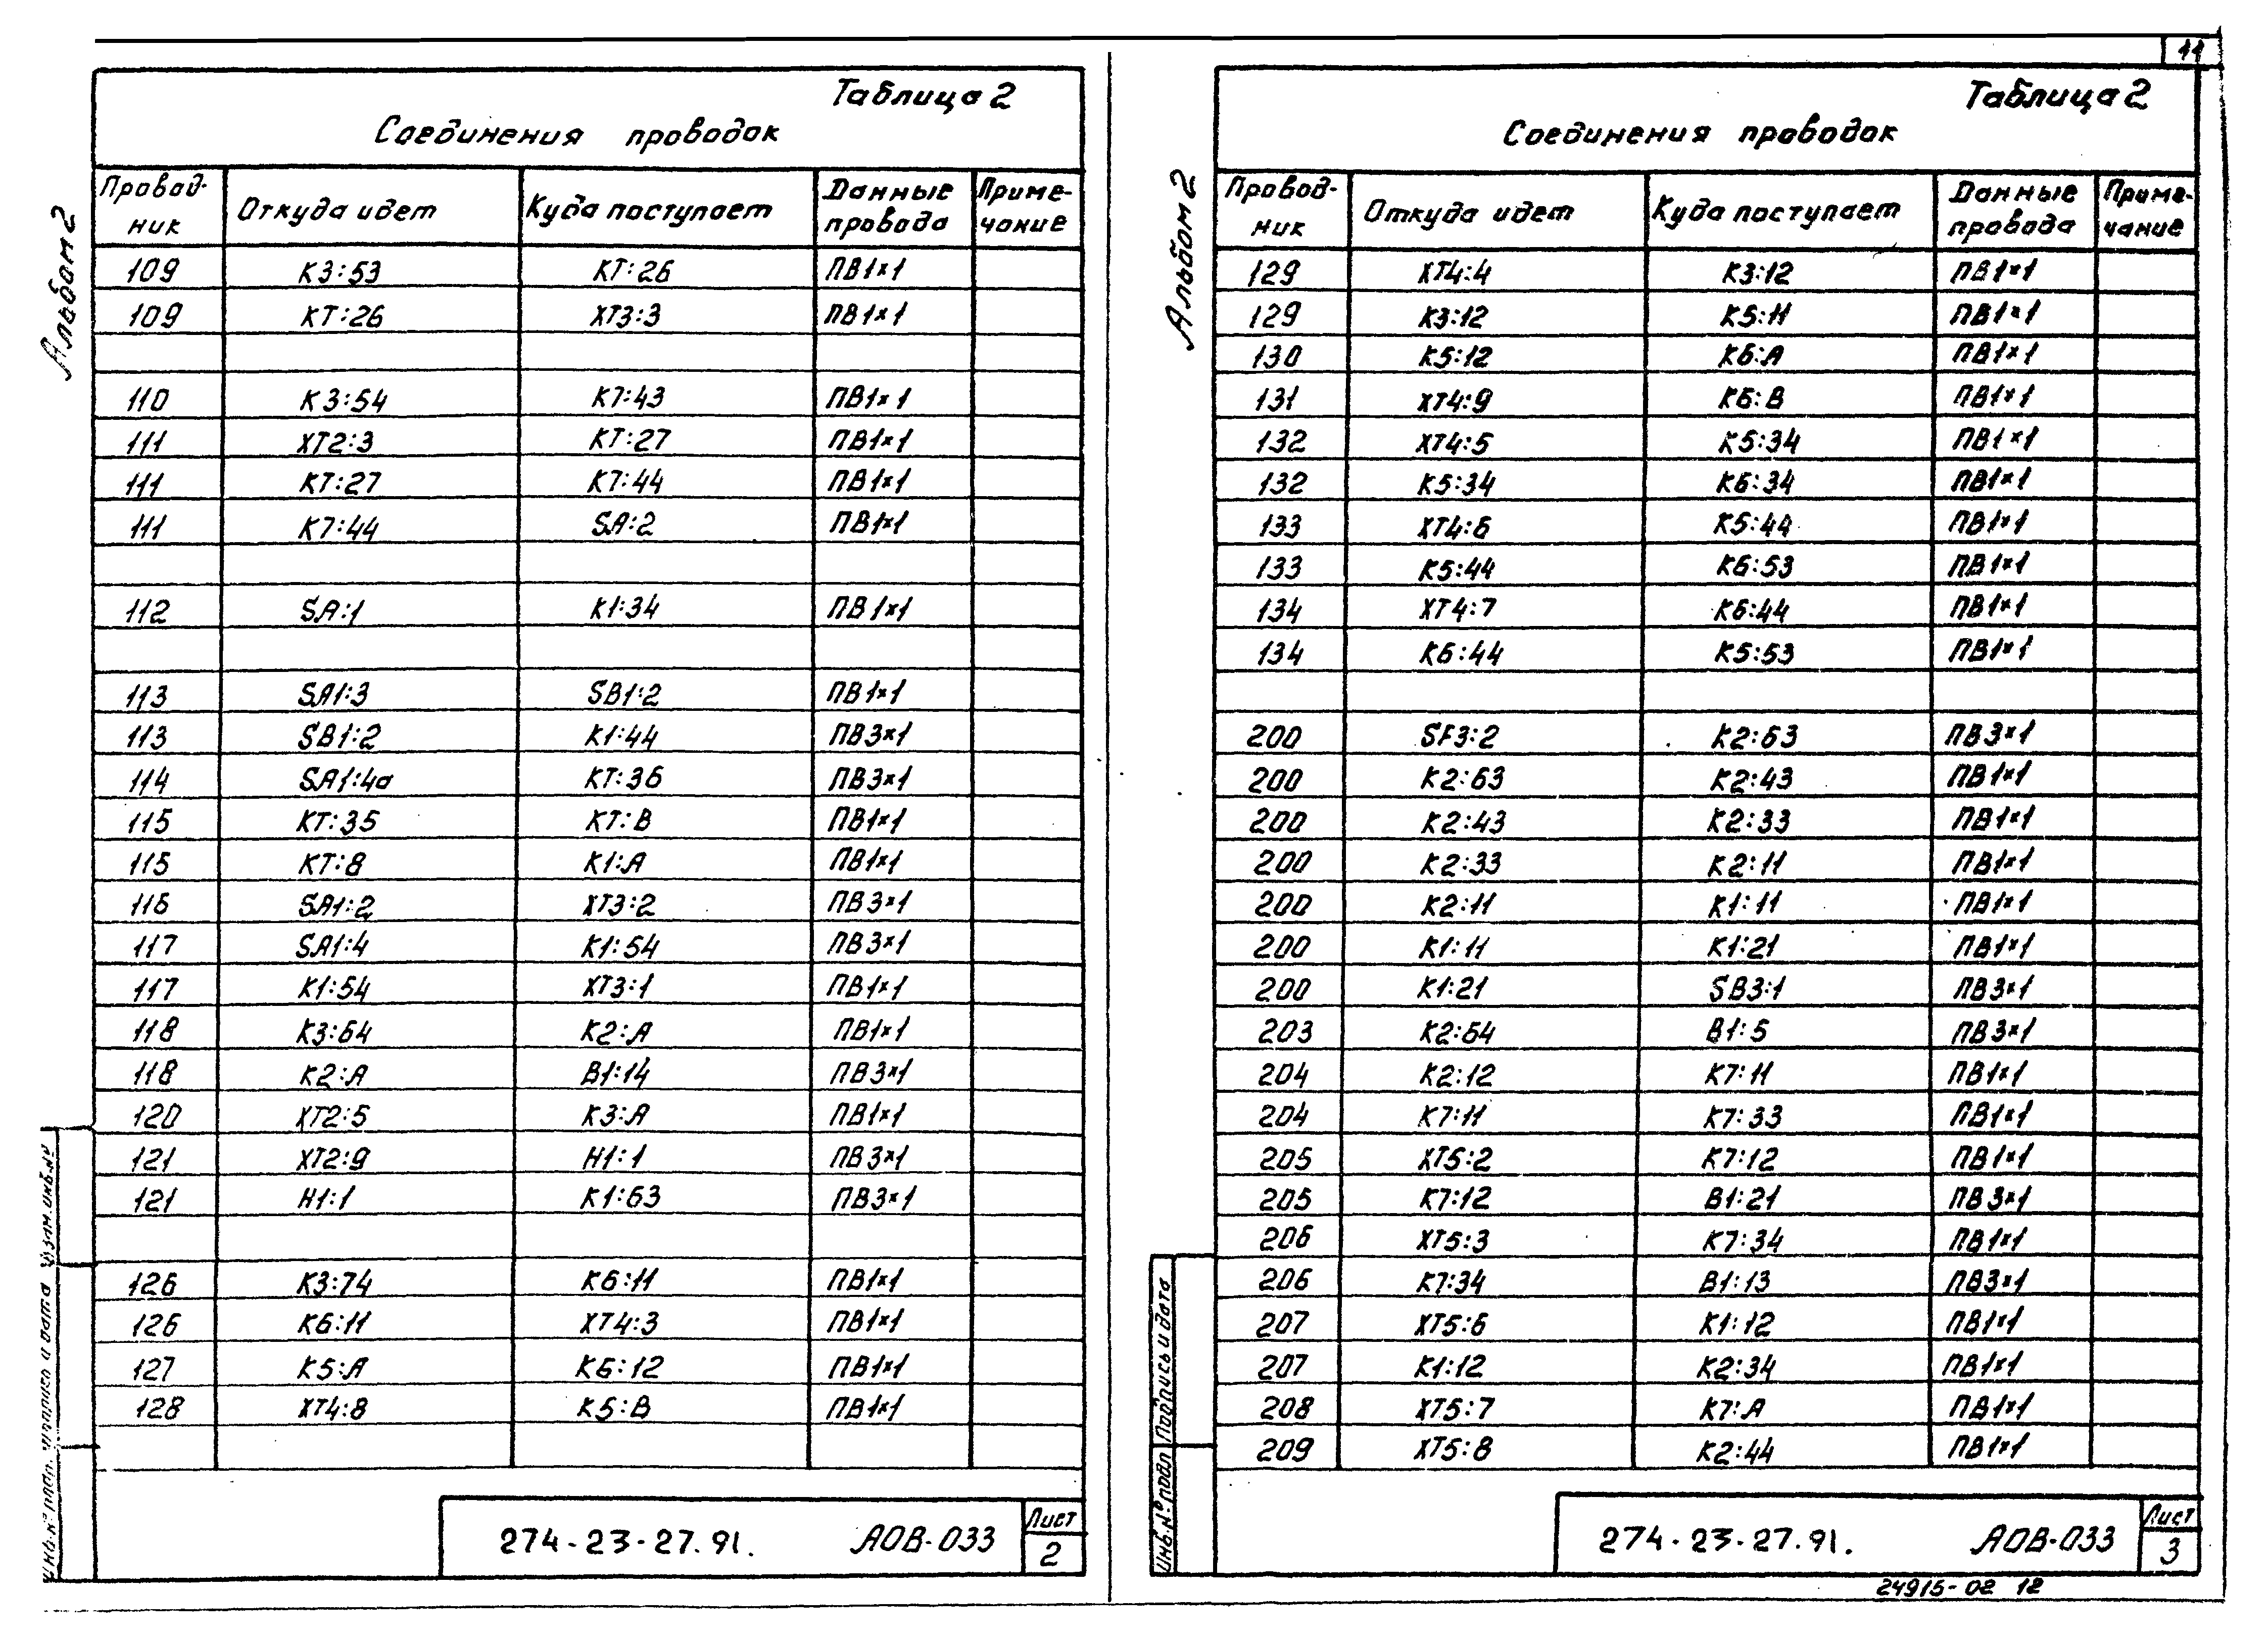 11
Альбом 2
Таблица 2
Соединения проводок
Провод- Откуда идет Куда поступает Данные Приме-
ник провода чание
109 К3:53 КТ:26 ПВ1×1
109 КТ:26 ХТ3:3 ПВ1×1
110 К3:54 К7:43 ПВ1×1
111 ХТ2:3 КТ:27 ПВ1×1
111 КТ:27 К7:44 ПВ1×1
111 К7:44 SA:2 ПВ1×1
112 SA:1 К1:34 ПВ1×1
113 SA1:3 SB1:2 ПВ1×1
113 SB1:2 К1:44 ПВ3×1
114 SA1:4а КТ:36 ПВ3×1
115 КТ:35 КТ:В ПВ1×1
115 КТ:В К1:А ПВ1×1
116 SA1:2 ХТ3:2 ПВ3×1
117 SA1:4 К1:54 ПВ3×1
117 К1:54 ХТ3:1 ПВ1×1
118 К3:64 К2:А ПВ1×1
118 К2:А В1:14 ПВ3×1
120 ХТ2:5 К3:А ПВ1×1
121 ХТ2:9 Н1:1 ПВ3×1
121 Н1:1 К1:63 ПВ3×1
126 К3:74 К6:11 ПВ1×1
126 К6:11 ХТ4:3 ПВ1×1
127 К5:А К6:12 ПВ1×1
128 ХТ4:8 К5:В ПВ1×1
Взам. инв. №
и дата
Инв. №
274-23-27.91. АОВ-033 Лист
2
Альбом 2
Таблица 2
Соединения проводок
Провод- Откуда идет Куда поступает Данные Приме-
ник провода чание
129 ХТ4:4 К3:12 ПВ1×1
129 К3:12 К5:11 ПВ1×1
130 К5:12 К6:А ПВ1×1
131 ХТ4:9 К6:В ПВ1×1
132 ХТ4:5 К5:34 ПВ1×1
132 К5:34 К6:34 ПВ1×1
133 ХТ4:6 К5:44 ПВ1×1
133 К5:44 К6:53 ПВ1×1
134 ХТ4:7 К6:44 ПВ1×1
134 К6:44 К5:53 ПВ1×1
200 SF3:2 К2:63 ПВ3×1
200 К2:63 К2:43 ПВ1×1
200 К2:43 К2:33 ПВ1×1
200 К2:33 К2:11 ПВ1×1
200 К2:11 К1:11 ПВ1×1
200 К1:11 К1:21 ПВ1×1
200 К1:21 SB3:1 ПВ3×1
203 К2:64 В1:5 ПВ3×1
204 К2:12 К7:11 ПВ1×1
204 К7:11 К7:33 ПВ1×1
205 ХТ5:2 К7:12 ПВ1×1
205 К7:12 В1:21 ПВ3×1
206 ХТ5:3 К7:34 ПВ1×1
206 К7:34 В1:13 ПВ3×1
207 ХТ5:6 К1:12 ПВ1×1
207 К1:12 К2:34 ПВ1×1
208 ХТ5:7 К7:А ПВ1×1
209 ХТ5:8 К2:44 ПВ1×1
Подпись и дата
Инв. № подл
274-23-27.91. АОВ-033 Лист
3
24915-02 12